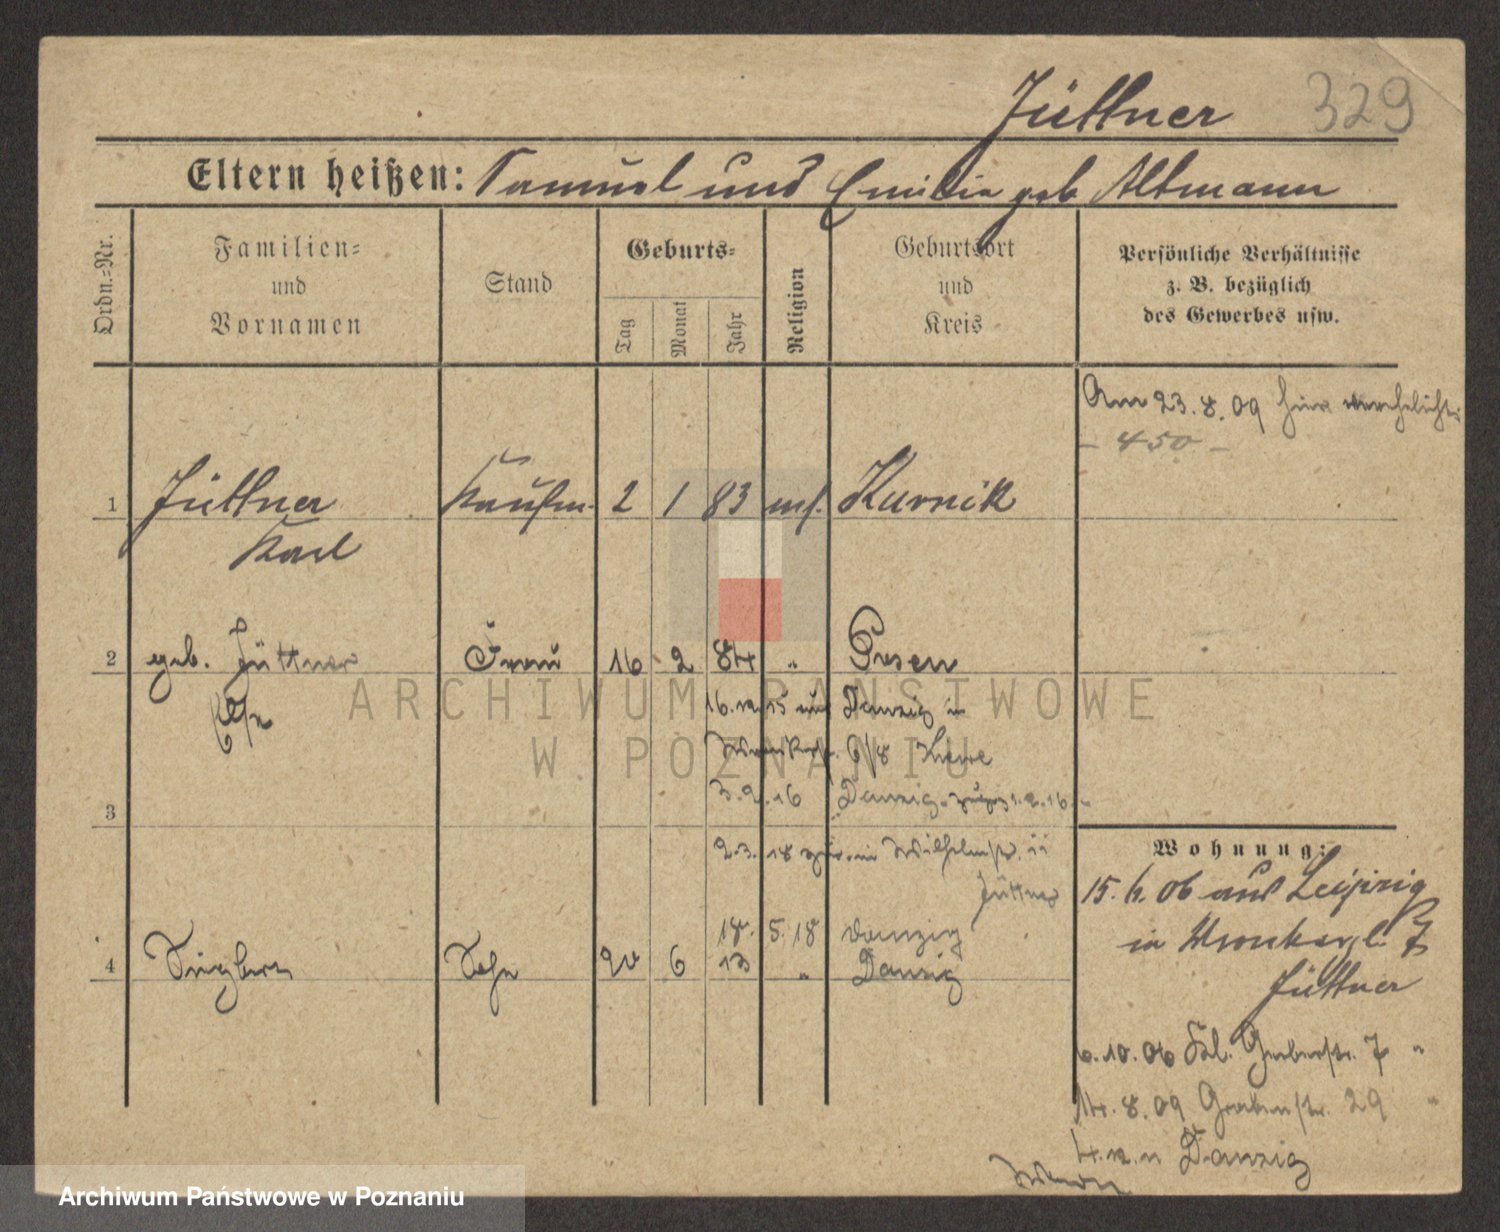 Jüttner 329
Eltern heißen: Samuel und Emilie geb Altmann
Ordn.=Nr.
Familien=
und
Vornamen
Stand
Geburts=
Tag
Monat
Jahr
Religion
Geburtsort
und
Kreis
Persönliche Verhältnisse
z. B. bezüglich
des Gewerbes usw.
Am 23.8.09 hier verehelicht
- 450 -
1 Jüttner Kaufm. 2 1 83 mos. Kurnik
Karl
2 geb. Jüttner Frau 16 2 84 " Posen
16. 15 aus Danzig in
6/8
3.2.16 Danzig 1.2.16.
3
2.3.18 Wilhelmstr. 11
Jüttner
18.5.18 Danzig
4 Siegbert Sohn 20 6 13 " Danzig
Wohnung:
15.6.06 aus Leipzig
in Wronkergl. 7
Jüttner
6.10.06 Kl. Gerberstr. 7 "
14.8.09 Grabenstr. 29 "
Danzig
ARCHIWUM PAŃSTWOWE
W POZNANIU
Archiwum Państwowe w Poznaniu